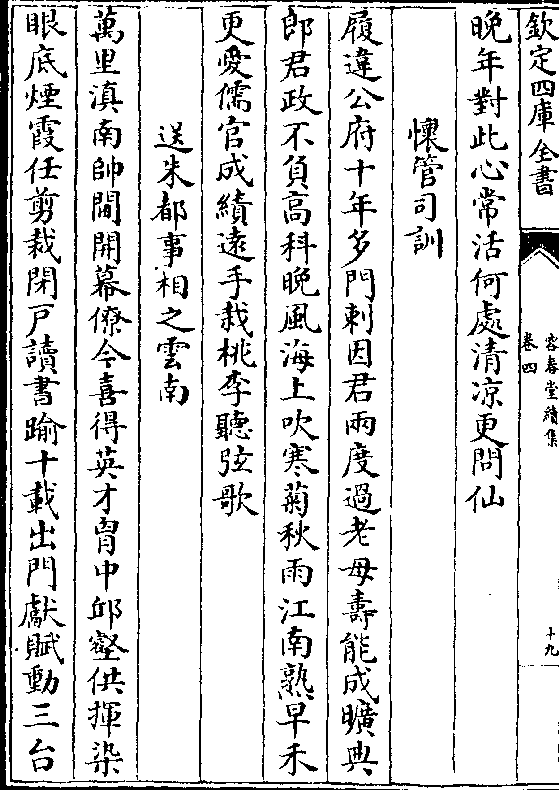 欽定四庫全書
容春堂續集
卷四
十九
晚年對此心常活何處清凉更問仙
懷管司訓
履違公府十年多門刺因君兩度過老母壽能成曠典
郎君政不負高科晚風海上吹寒菊秋雨江南熟早禾
更愛儒官成績逺手栽桃李聽弦歌
送朱都事相之雲南
萬里滇南帥閫開幕僚今喜得英才胷中邱壑供揮染
眼底煙霞任剪裁閉戸讀書踰十載出門獻賦動三台